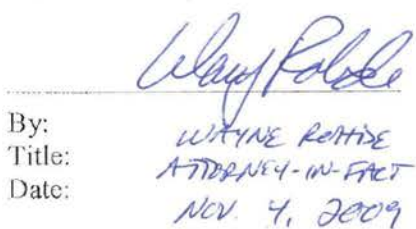 By: WAYNE
Title: ATTORNEY-IN-FACT
Date: NOV. 4, 2009